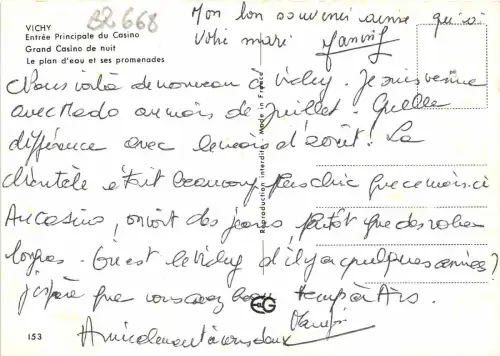 VICHY
Entrée Principale du Casino
Grand Casino de nuit
Le plan d'eau et ses promenades
82668
Mon bon souvenir ainsi qu'à
Votre mari
Nous voilà de nouveau à Vichy. Je suis venue
avec Mado au mois de Juillet. Quelle
différence avec le mois d'août! La
clientèle était beaucoup plus chic que ce mois-ci
Au casino, on voit des jeans plutôt que des robes
longues. Où est le Vichy d'il y a quelques années?
J'espère que vous avez beau temps à Ars.
Amicalement à vous deux
Reproduction interdite - Made in France
153